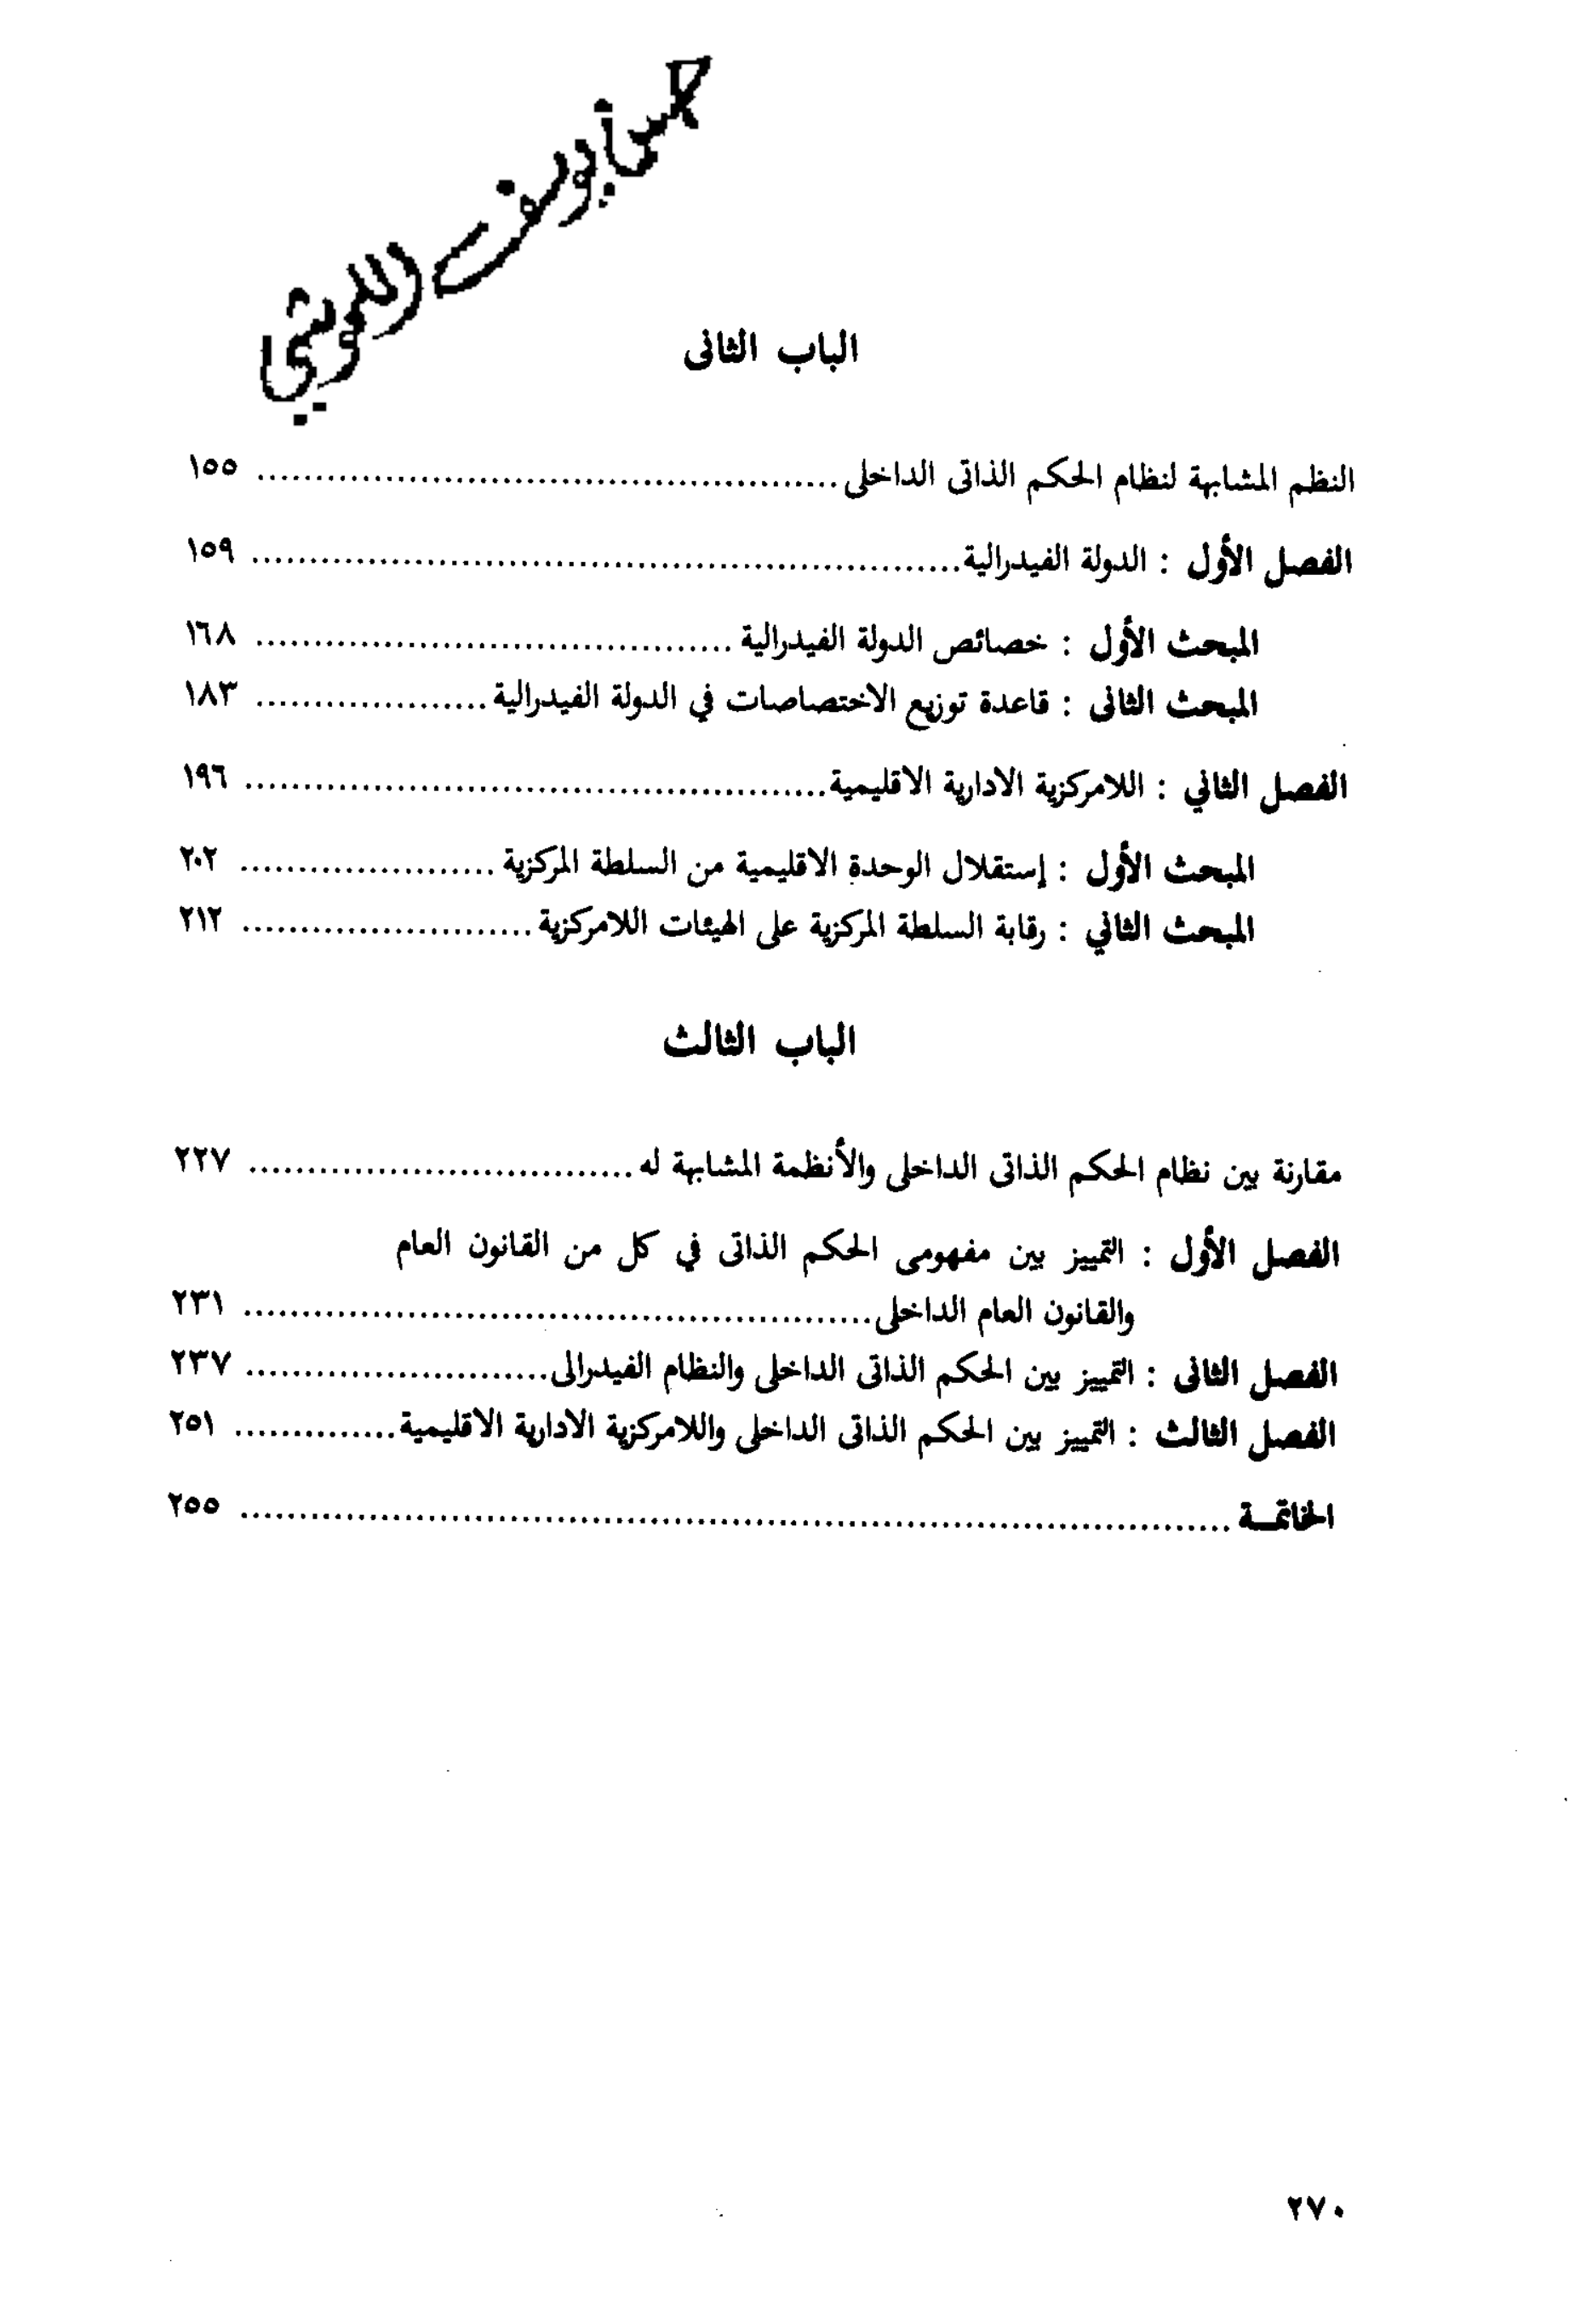 الباب الثانى
النظم المشابهة لنظام الحكم الذاتى الداخلى .................................................. ١٥٥
الفصل الأول : الدولة الفيدرالية............................................................. ١٥٩
المبحث الأول : خصائص الدولة الفيدرالية ......................................... ١٦٨
المبحث الثانى : قاعدة توزيع الاختصاصات في الدولة الفيدرالية.................... ١٨٣
الفصل الثاني : اللامركزية الادارية الاقليمية.................................................. ١٩٦
المبحث الأول : إستقلال الوحدة الاقليمية من السلطة المركزية ...................... ٢٠٢
المبحث الثاني : رقابة السلطة المركزية على الهيئات اللامركزية ......................... ٢١٢
الباب الثالث
مقارنة بين نظام الحكم الذاتى الداخلى والأنظمة المشابهة له ................................. ٢٢٧
الفصل الأول : التمييز بين مفهومى الحكم الذاتى في كل من القانون العام
والقانون العام الداخلى...................................................... ٢٣١
الفصل الثانى : التمييز بين الحكم الذاتى الداخلى والنظام الفيدرالى.......................... ٢٣٧
الفصل الثالث : التمييز بين الحكم الذاتى الداخلى واللامركزية الادارية الاقليمية.............. ٢٥١
الخاتمـة ..................................................................................... ٢٥٥
٢٧٠